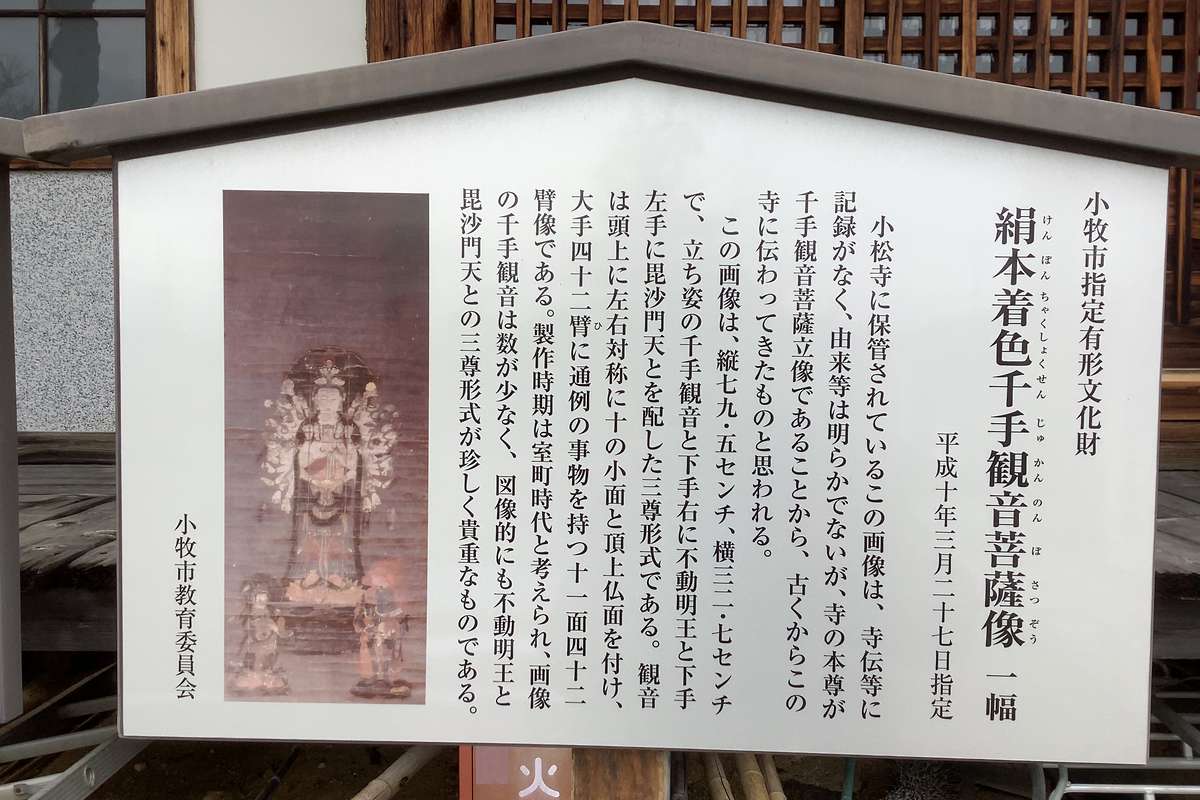 小牧市指定有形文化財
絹本着色千手観音菩薩像 一幅
けんぽんちゃくしょくせんじゅかんのんぼさつぞう
平成十年三月二十七日指定
小松寺に保管されているこの画像は、寺伝等に
記録がなく、由来等は明らかでないが、寺の本尊が
千手観音菩薩立像であることから、古くからこの
寺に伝わってきたものと思われる。
この画像は、縦七九・五センチ、横三二・七センチ
で、立ち姿の千手観音と下手右に不動明王と下手
左手に毘沙門天とを配した三尊形式である。観音
は頭上に左右対称に十の小面と頂上仏面を付け、
大手四十二臂に通例の事物を持つ十一面四十二
ひ
臂像である。製作時期は室町時代と考えられ、画像
の千手観音は数が少なく、図像的にも不動明王と
毘沙門天との三尊形式が珍しく貴重なものである。
小牧市教育委員会
火